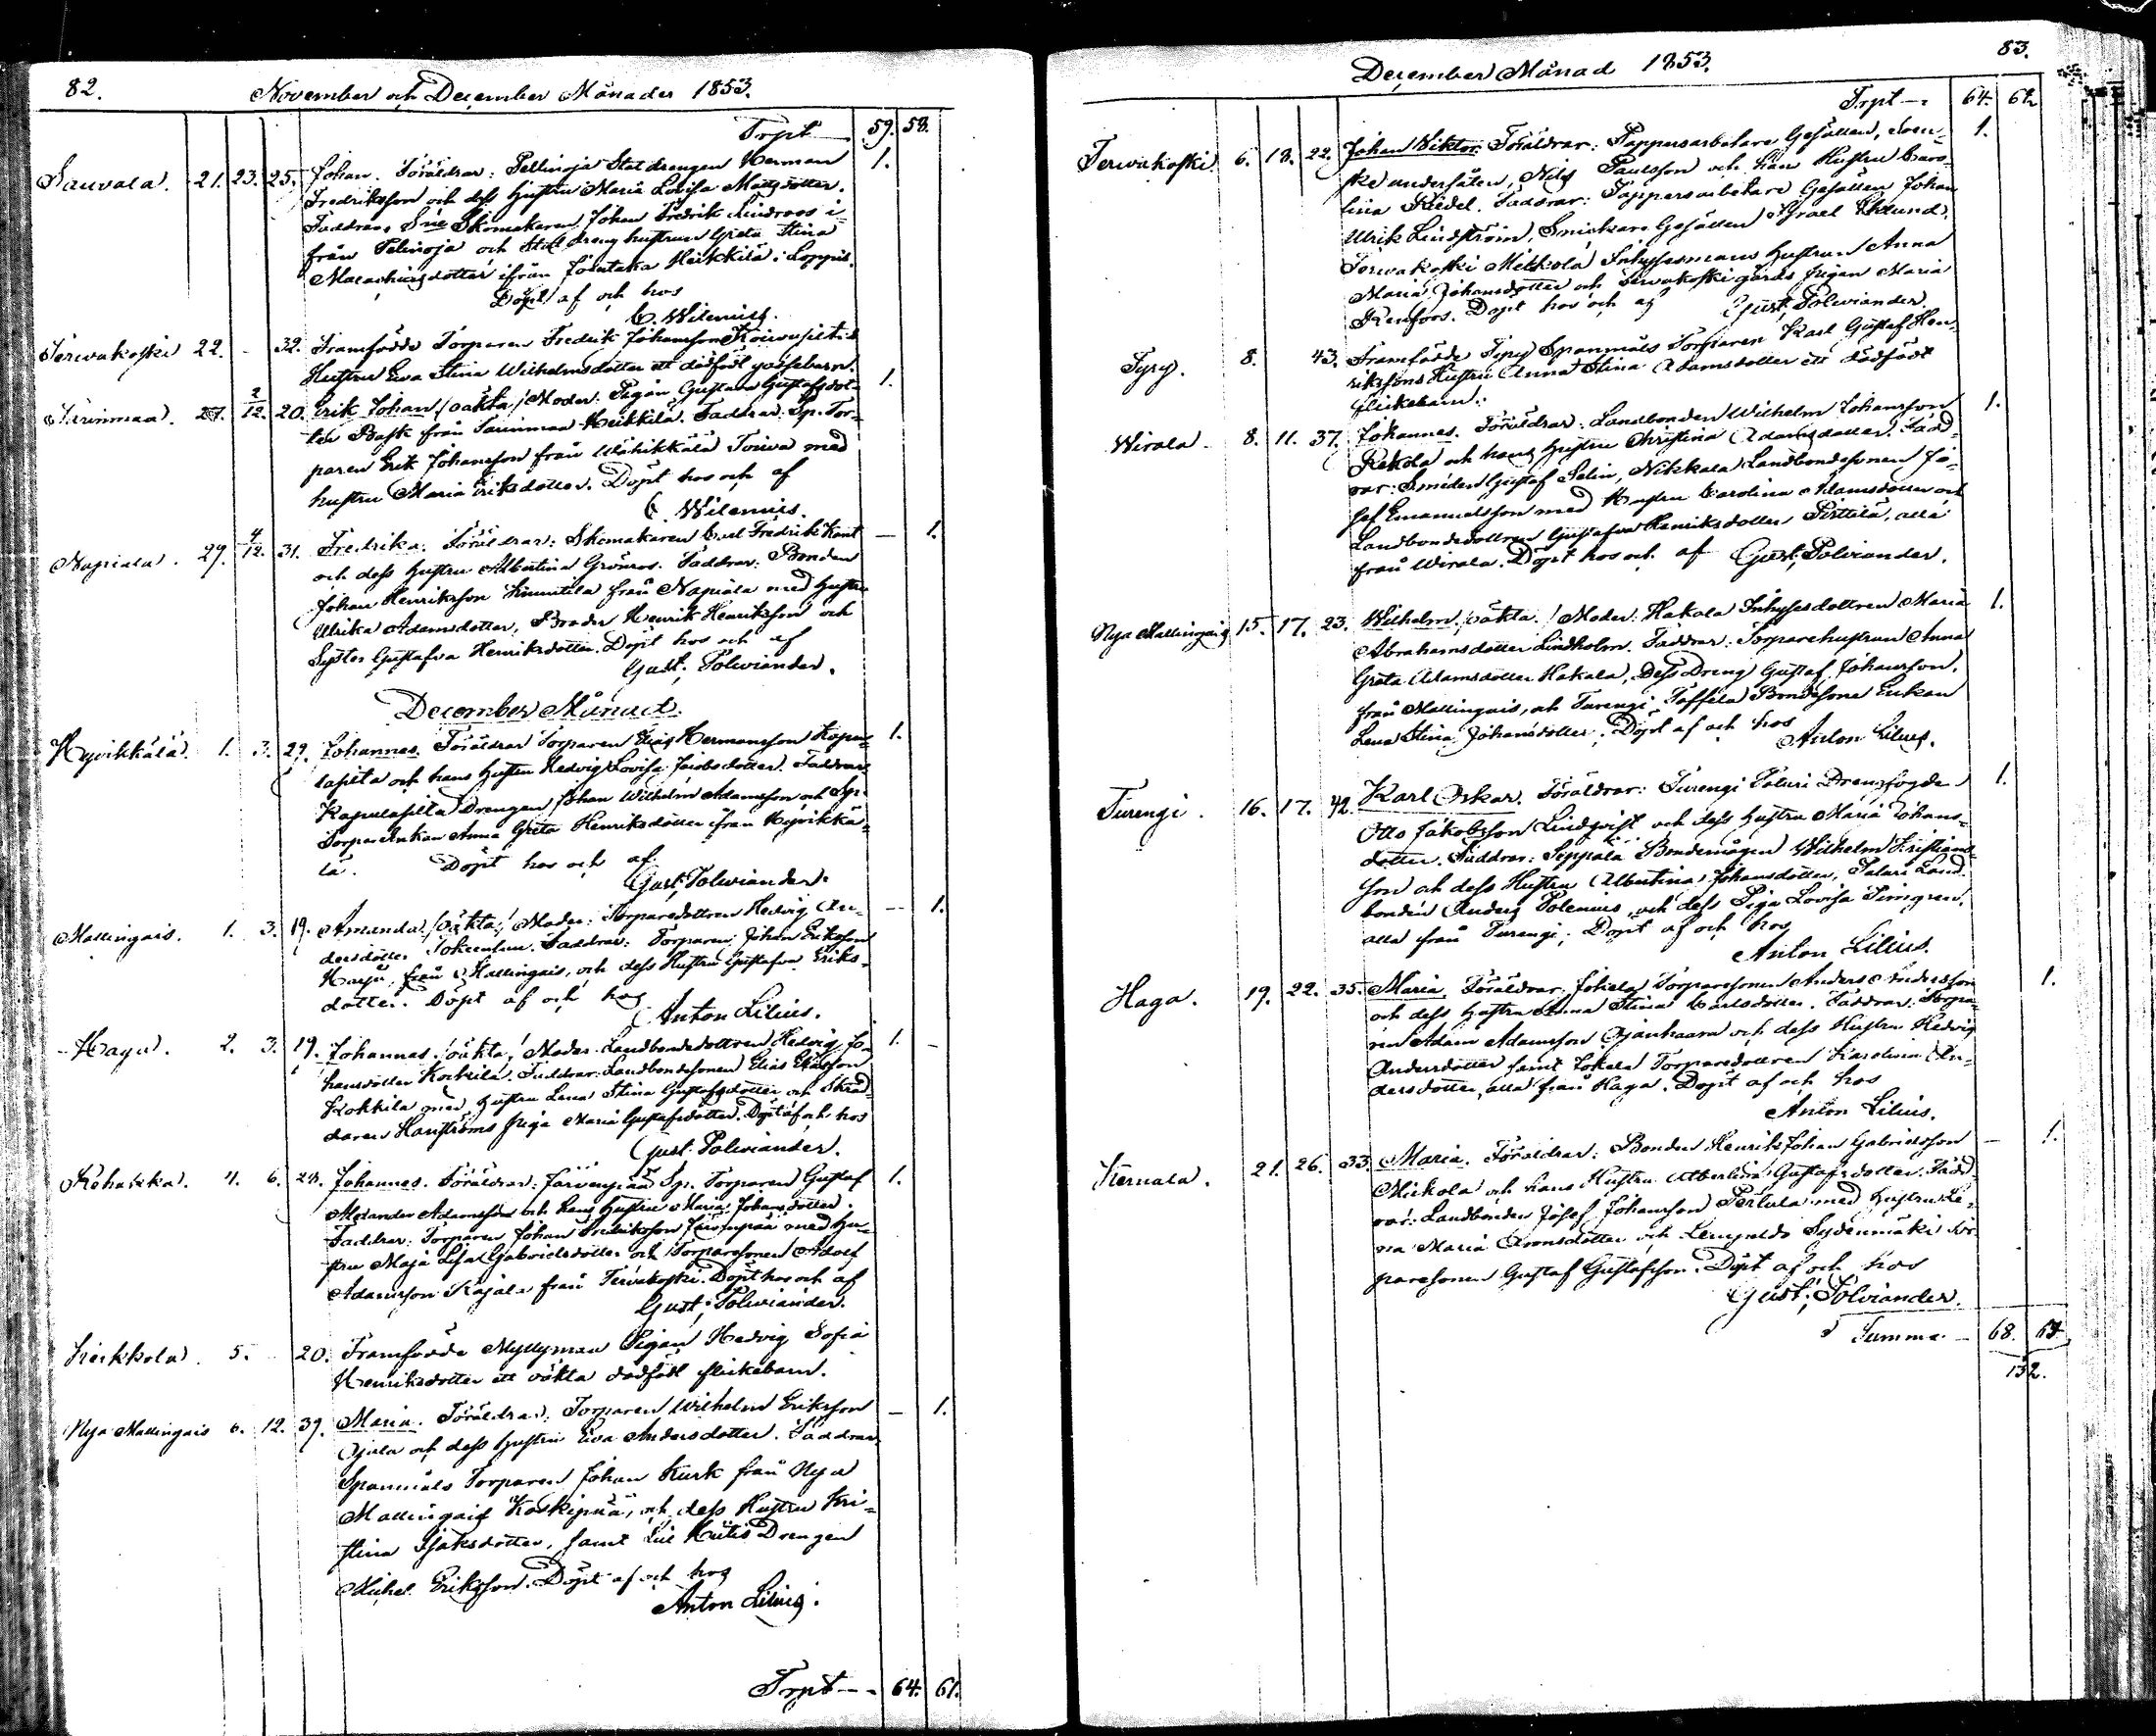 82.
November och December Månader 1853.
Trpt — 59. 58.
Sauvala. 21. 23. 25. Johan. Föräldrar: Pellinoja Statdrengen Herman 1.
Fredriksson och dess hustru Maria Lovisa Mattsdotter.
Faddrar: Skomakaren Johan Fredrik Lindroos i
från Pelinoja och Statdreng hustrun Greta Stina
ifrån Heikkilä i Loppis.
Döpt af och hos
C. Wilenius.
Terwakoski 22. - 32. Framfödde Torparen Fredrik Johansson
Hustru Eva Stina Wilhelmsdotter ett dödfödt gossebarn.
27. 2/12. 20. Erik Johan /oäkta/ Moder: Pigan Gustava Gustafsdot- 1.
ter Bask från Heikkilä. Faddrar: Sp. Tor-
paren Erik Johansson från Wähikkälä Toiva med
hustru Maria Eriksdotter. Döpt hos och af
C. Wilenius.
Napiala. 29. 4/12. 31. Fredrika. Föräldrar: Skomakaren Carl Fredrik Kant — 1.
och dess hustru Albertina Grönros. Faddrar: Bonden
Johan Henriksson från Napiala med hustru
Ulrika Adamsdotter, Broder Henrik Henriksson och
Syster Gustafva Henriksdotter. Döpt hos och af
Gust. Polviander.
December Månad.
Hyvikkälä. 1. 3. 29. Johannes. Föräldrar Torparen Elias Hermansson Kapu- 1.
lasilta och hans hustru Hedvig Lovisa Jacobsdotter. Faddrar:
Kapulasilta Drengen Johan Wilhelm Adamsson och Sp.
Torpar Enkan Anna Greta Henriksdotter ifrån Hyvikkä-
lä. Döpt hos och af
Gust. Polviander.
Mallingais. 1. 3. 19. Amanda /oäkta/ Moder: Torparedottren Hedvig An- — 1.
dersdotter. Faddrar: Torparen Johan Eriksson
Harju, från Mallingais, och dess Hustru Gustafva Eriks-
dotter. Döpt af och hos
Anton Lilius.
Haga. 2. 3. 19. Johannes. /oäkta/ Moder: Landbondedottren Hedvig Jo- 1. -
hansdotter Kockila. Faddrar: Landbondesonen Elias Eliasson
Kokkila med hustru Lena Stina Gustafsdotter och Skräd-
daren Hanströms piga Maria Gustafsdotter. Döpt af och hos
Gust. Polviander.
4. 6. 28. Johannes. Föräldrar: Järvenpää Sp. Torparen Gustaf 1.
Alexander Adamsson och hans Hustru Maria Johansdotter.
Faddrar: Torparen Johan Fredriksson Järvenpää med hu-
stru Maja Lisa Gabrielsdotter och Torparesonen Adolf
Adamsson Kajala från Terwakoski. Döpt hos och af
Gust. Polviander.
5. - 20. Framfödde Myllymaa Pigan Hedvig Sofia
Henriksdotter ett oäkta dödfödt flickebarn.
Nya Mallingais 6. 12. 39. Maria. Föräldrar: Torparen Wilhelm Eriksson — 1.
Ojala och dess hustru Eva Andersdotter. Faddrar:
Spanmåls Torparen Johan Kurk från Nya
Mallingais Koskipää, och dess Hustru Kri-
stina Isaksdotter, samt Drengen
Michel Eriksson. Döpt af och hos
Anton Lilius.
Trpt — 64. 61.
December Månad 1853.
83.
Trpt — 64. 62
Terwakoski. 6. 18. 22. Johan Viktor. Föräldrar: Pappersarbetare Gesällen, Sven- 1.
ske undersåten, Nils Paulsson och hans Hustru Caro-
lina Riedel. Faddrar: Pappersarbetare Gesällen Johan
Ulrik Lindström, Snickare Gesällen Israel Eklund,
Terwakoski Mikkola Inhysesmans Hustrun Anna
Maria Johansdotter och Terwakoski gårds pigan Maria
Renfors. Döpt hos och af Gust. Polviander.
8. 43. Framfödde Spanmåls Torparen Karl Gustaf Hen-
rikssons Hustru Anna Stina Adamsdotter ett dödfödt
flickebarn.
Wirala. 8. 11. 37. Johannes. Föräldrar: Landbonden Wilhelm Johansson 1.
Rekola och hans hustru Christina Adamsdotter. Fadd-
rar: Smeden Gustaf Selin, Nikkala Landbondesonen Jo-
sef Emanuelsson med Hustru Carolina Adamsdotter och
Landbondedottren Gustafva Henriksdotter Pirttilä, alla
från Wirala. Döpt hos och af Gust. Polviander.
Nya Mallingais 15. 17. 23. Wilhelm, /oäkta./ Moder: Hakala Inhysesdottren Maria 1.
Abrahamsdotter Lindholm. Faddrar: Torparehustrun Anna
Greta Adamsdotter Hakala, Dess Dreng Gustaf Johansson,
från Mallingais, och Turengi Toffila Bondesons Enkan
Lena Stina Johansdotter. Döpt af och hos
Anton Lilius.
Turengi. 16. 17. 42. Karl Oskar. Föräldrar: Turengi Drengfogden 1.
Otto Jakobsson Lindqvist och dess hustru Maria Johans-
dotter. Faddrar: Seppälä Bondemågen Wilhelm Kristians-
son och dess Hustru Albertina Johansdotter, Land-
bonden Anders Polenius, och dess Piga Lovisa
alla från Turengi. Döpt af och hos
Anton Lilius.
Haga. 19. 22. 35. Maria. Föräldrar: Jokela Torparesonen Anders Andersson 1.
och dess hustru Anna Stina Carlsdotter. Faddrar: Torpa-
ren Adam Adamsson Ojanhaara och dess Hustru Hedvig
Andersdotter samt Jokela Torparedottren Karolina An-
dersdotter, alla från Haga. Döpt af och hos
Anton Lilius.
Kernala. 21. 26. 33. Maria. Föräldrar: Bonden Henrik Johan Gabrielsson — 1.
Mickola och hans Hustru Albertina Gustafsdotter. Fadd-
rar: Landbonden Josef Johansson Perttula med hustru Le-
na Maria Aronsdotter och Lempoilds Sydänmäki Tor-
paresonen Gustaf Gustafsson. Döpt af och hos
Gust. Polviander.
Summa — 68. 64
132.